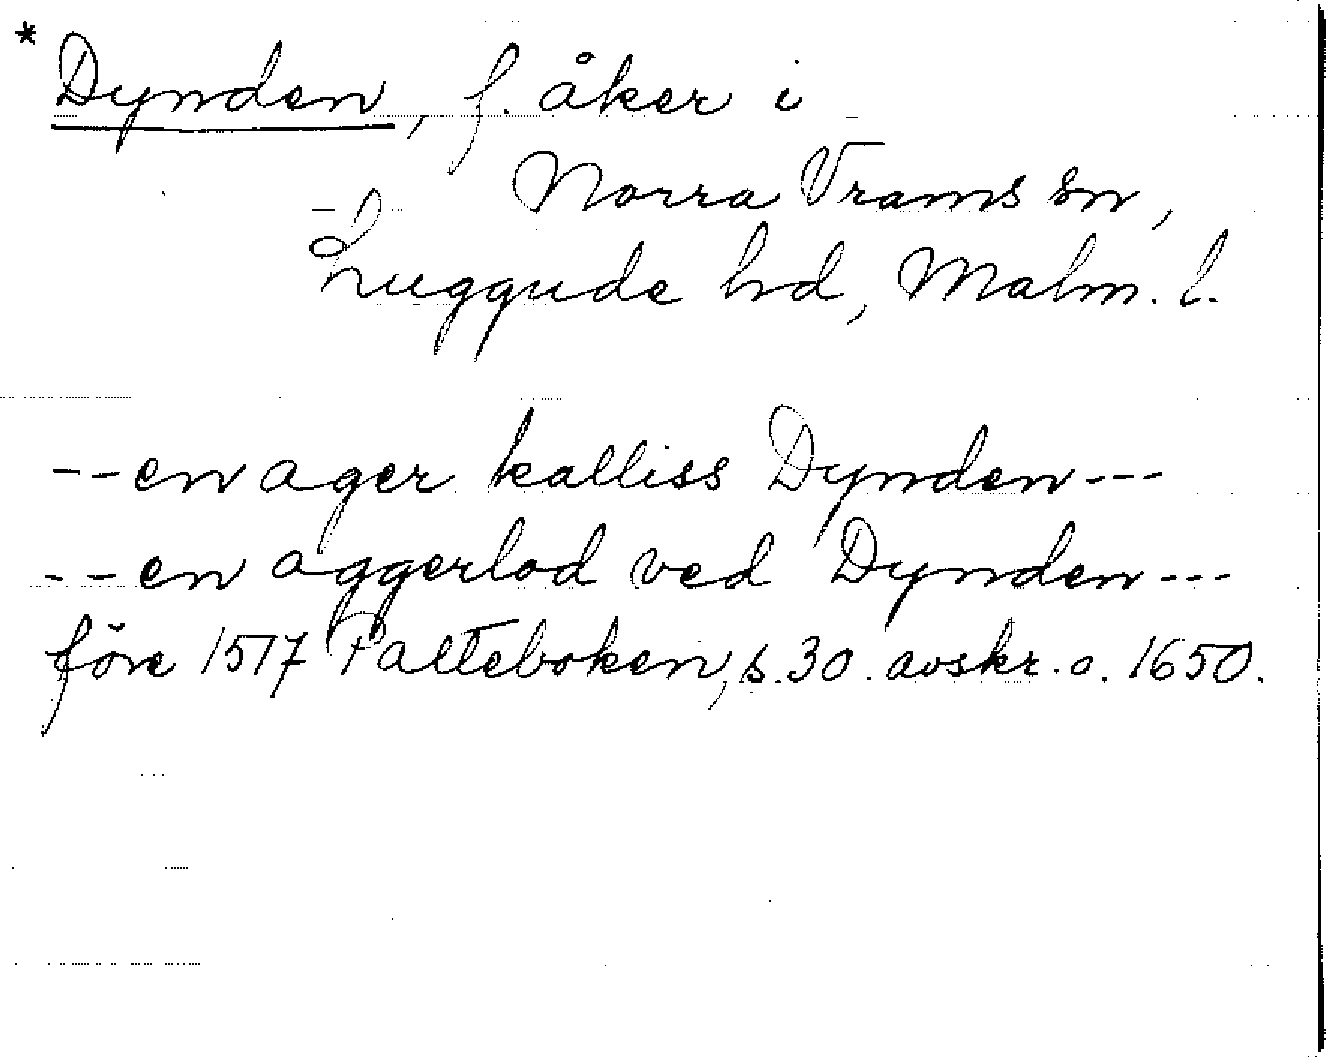 * Dynden, f. åker i
Norra Vrams sn,
Luggude hd, Malm. l.
--en ager kalliss Dynden---
--en aggerlod ved Dynden---
före 1517 Palteboken, s. 30. avskr. o. 1650.